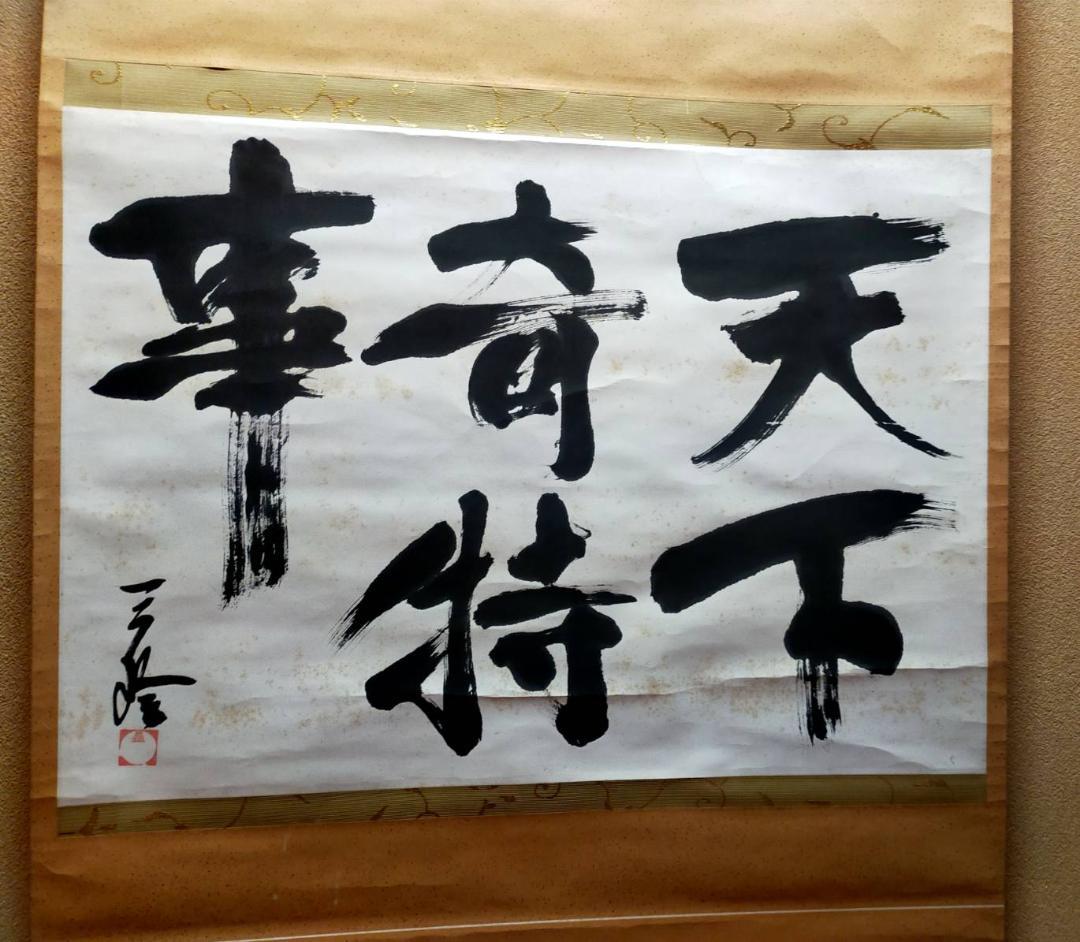 天下
奇特
事